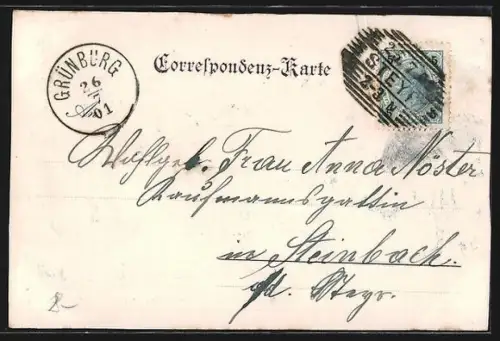 GRÜNBURG
26/7
01
Correspondenz-Karte
STEYR
Wohlgeb. Frau Anna Nöster
Kaufmannsgattin
in Steinbach
a/d. Steyr.
2-